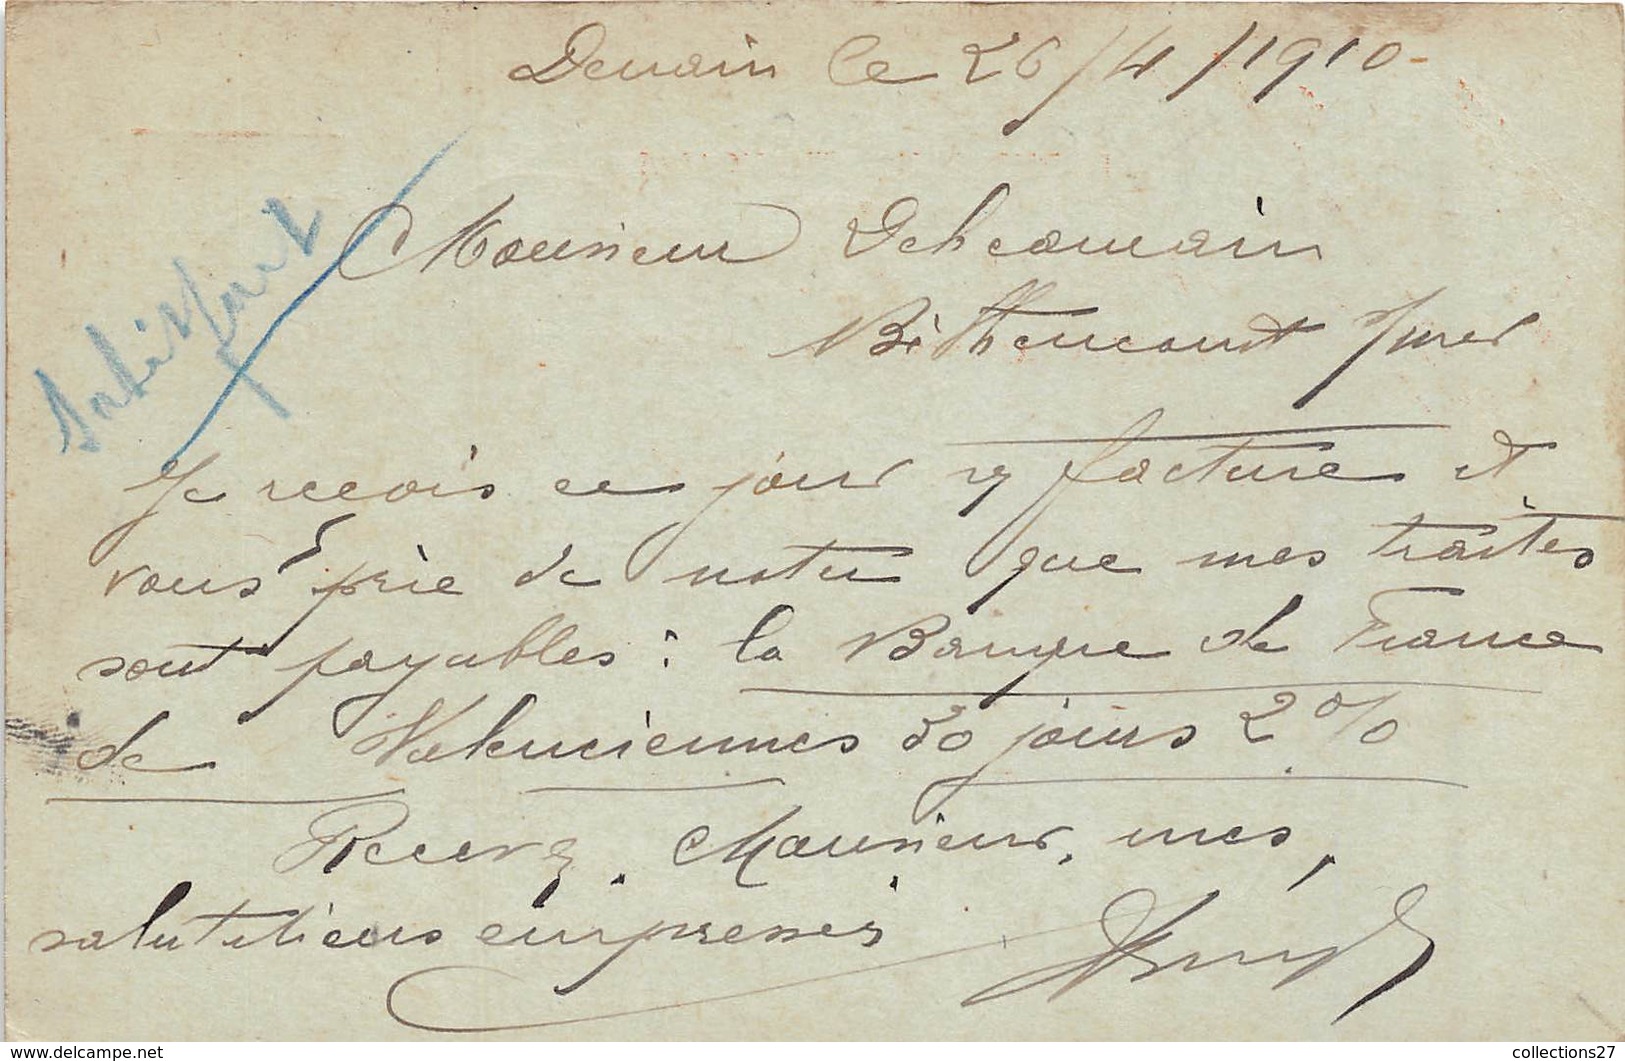 Denain le 26/4/1910-
Monsieur
Je reçois ce jour v/ facture et
vous prie de noter que mes traites
sont payables : la Banque de France
de Valenciennes 30 jours 2 %
Recevez, Monsieur, mes
salutations empressées
www.delcampe.net
collections27